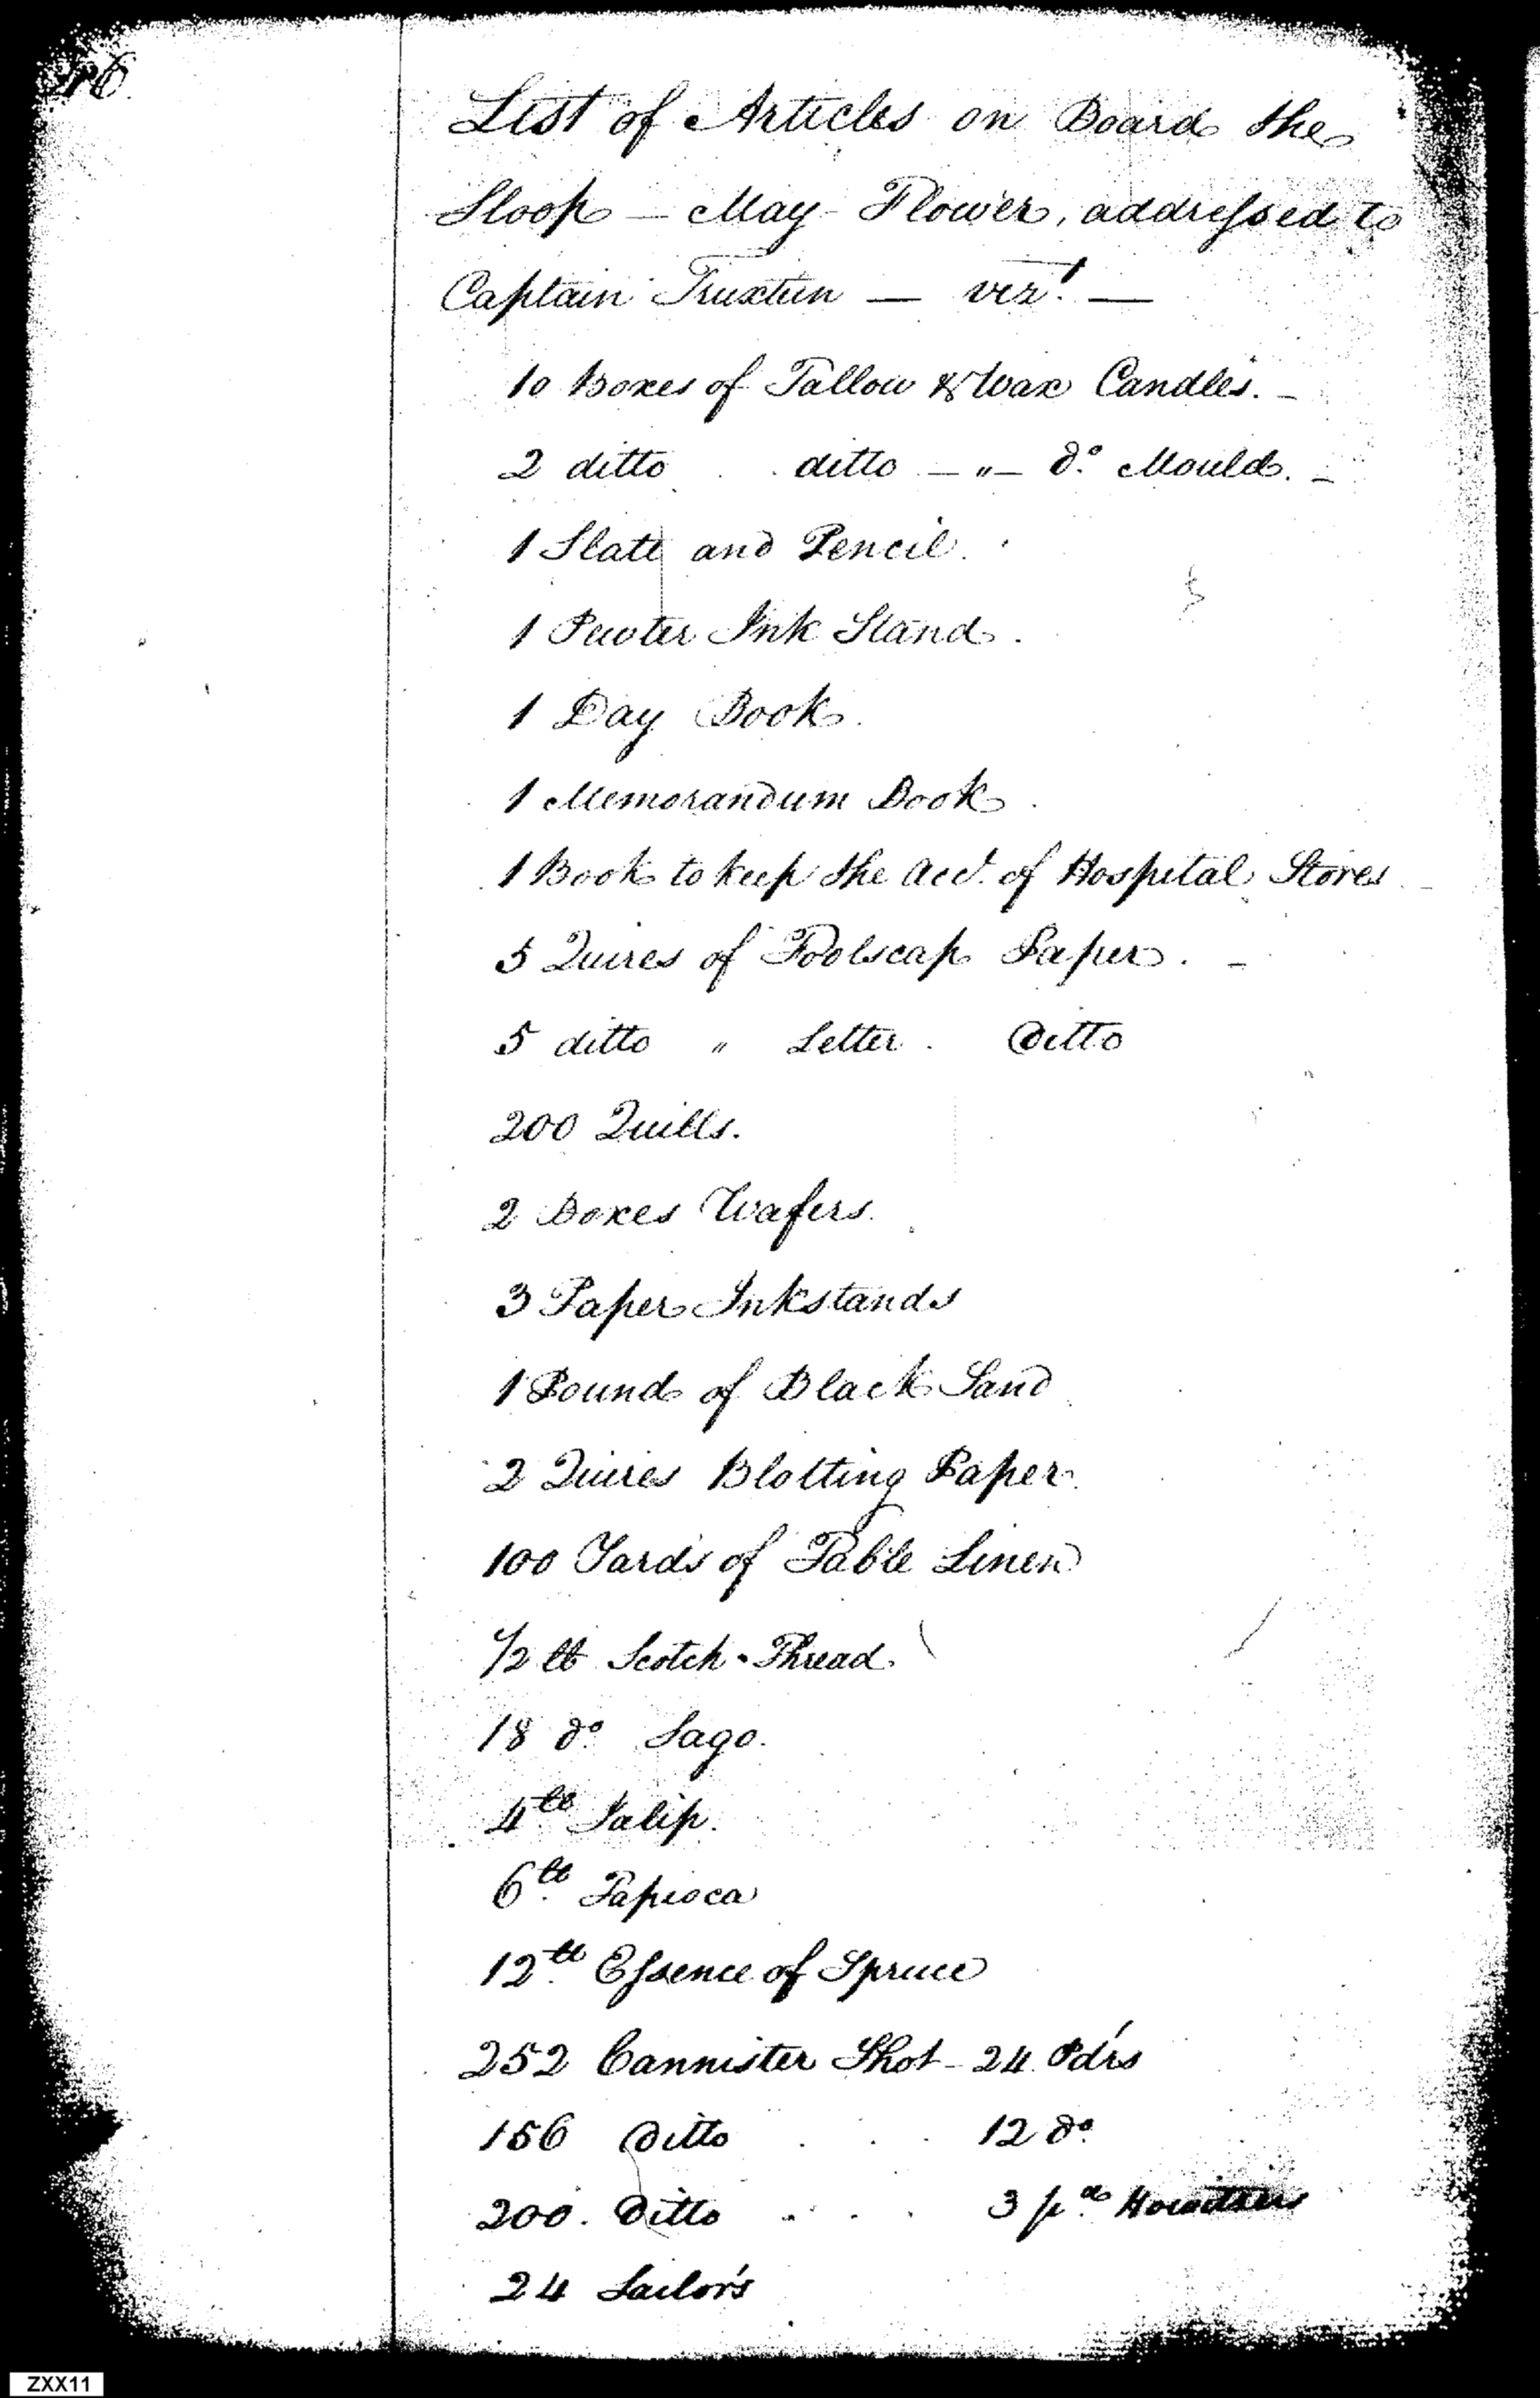 List of Articles on Board the
Sloop — May Flower, addressed to
Captain Truxtun — vizt. —
10 Boxes of Tallow & Wax Candles. –
2 ditto ditto – „ – do. Mould. –
1 Slate and Pencil.
1 Pewter Ink Stand.
1 Day Book.
1 Memorandum Book.
1 Book to keep the acct. of Hospital Stores
5 Quires of Foolscap Paper. –
5 ditto „ Letter. Ditto
200 Quills.
2 Boxes Wafers.
3 Paper Inkstands
1 Pound of Black Sand
2 Quires Blotting Paper.
100 Yards of Table Linen
1/2 lb Scotch - Thread.
18 do. Sago.
4 lb. Jalip.
6 lb. Tapioca
12 lb. Essence of Spruce
252 Cannister Shot – 24 Pd'rs
156 Ditto . . . 12 do.
200. Ditto . . . 3 pd. Howitzers
24 Sailor's
ZXX11